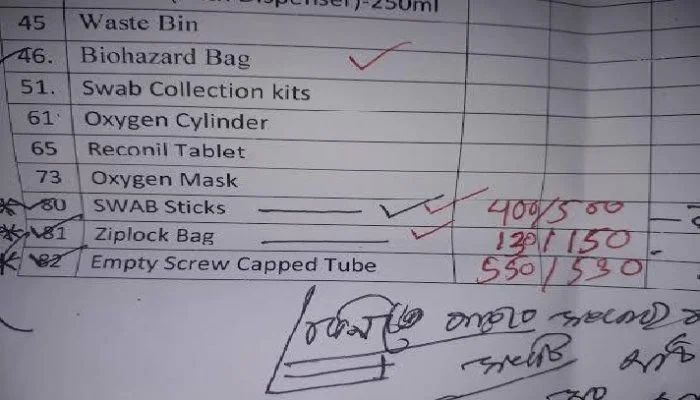 Dispenser)-250ml
45 Waste Bin
46. Biohazard Bag
51. Swab Collection kits
61 Oxygen Cylinder
65 Reconil Tablet
73 Oxygen Mask
80 SWAB Sticks 400/500
81 Ziplock Bag 130/150
82 Empty Screw Capped Tube 550/530